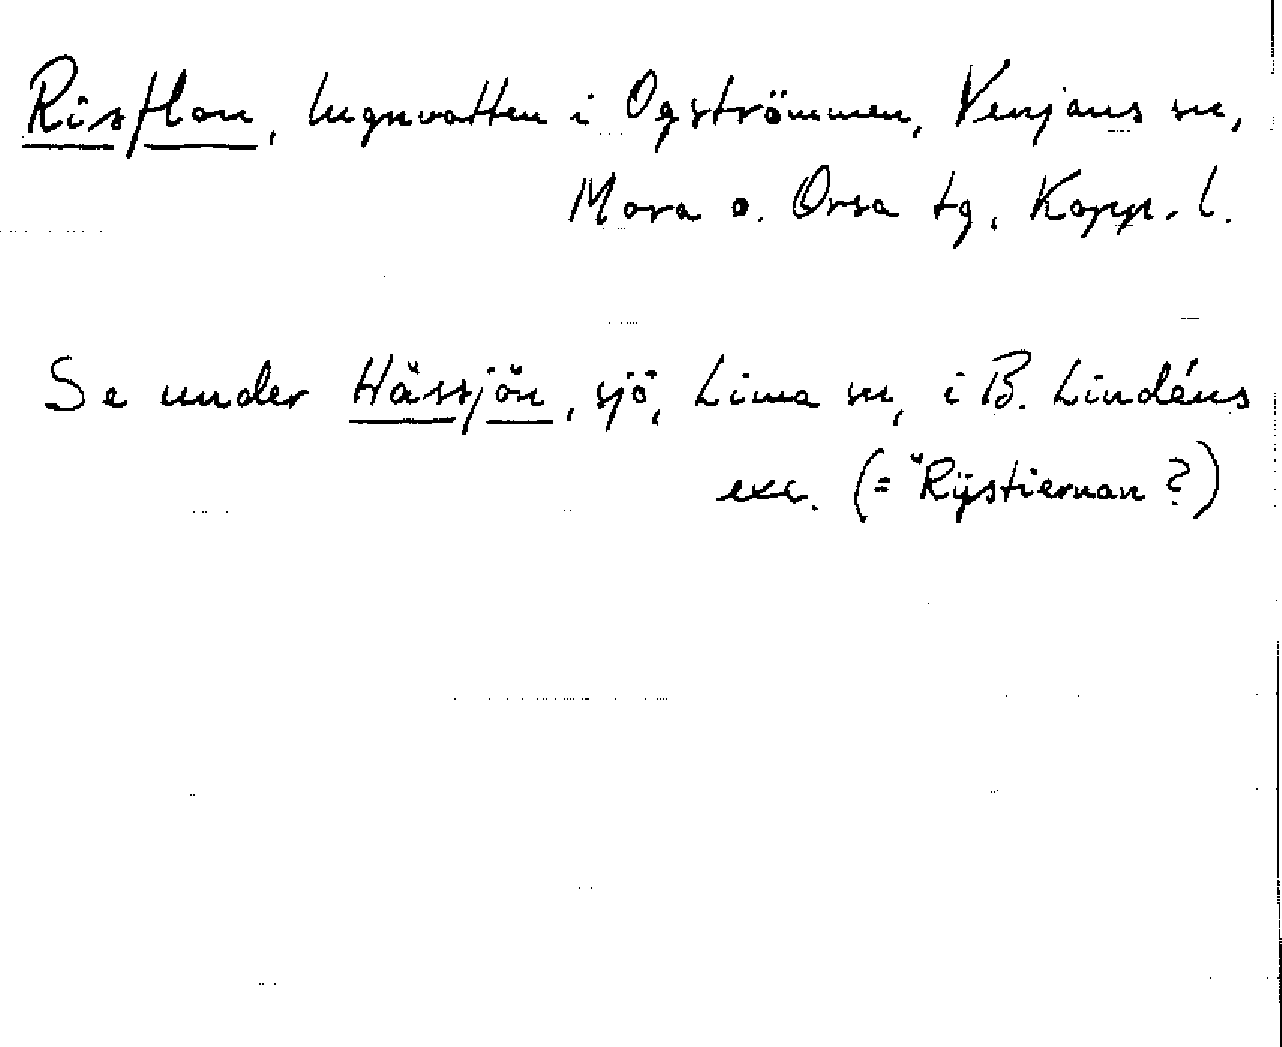 Risflon, lugnvatten i Ogströmmen, Venjans sn,
Mora o. Orsa tg, Kopp. l.
Se under Hässjön, sjö, Lima sn, i B. Lindéns
exc. (= "Rÿstiernan ?)